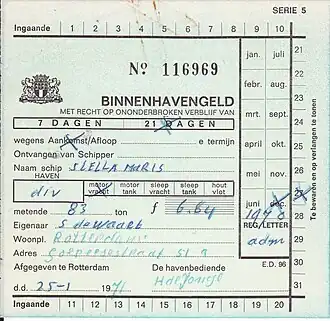 SERIE 5
Ingaande 1 2 3 4 5 6 7 8 9 10 Ingaande
Nº 116969
BINNENHAVENGELD
MET RECHT OP ONONDERBROKEN VERBLIJF VAN
7 DAGEN 21 DAGEN
wegens Aankomst/Afloop e termijn
Ontvangen van Schipper
Naam schip STELLA MARIS
HAVEN
div motor vracht motor tank sleep vracht sleep tank hout vlot
metende 83 ton f 6.64
Eigenaar S de Waard
Woonpl. Rotterdam
Adres
Afgegeven te Rotterdam De havenbediende
d.d. 25-1 1971
jan. juli
febr. aug.
mrt. sept.
april okt.
mei nov.
juni dec.
1970
REG/LETTER
adm
E.D. 96
21
22
23
24
25
26
27
28
29
30
31
Te bewaren en op verlangen te tonen
Ingaande 11 12 13 14 15 16 17 18 19 20 Ingaande